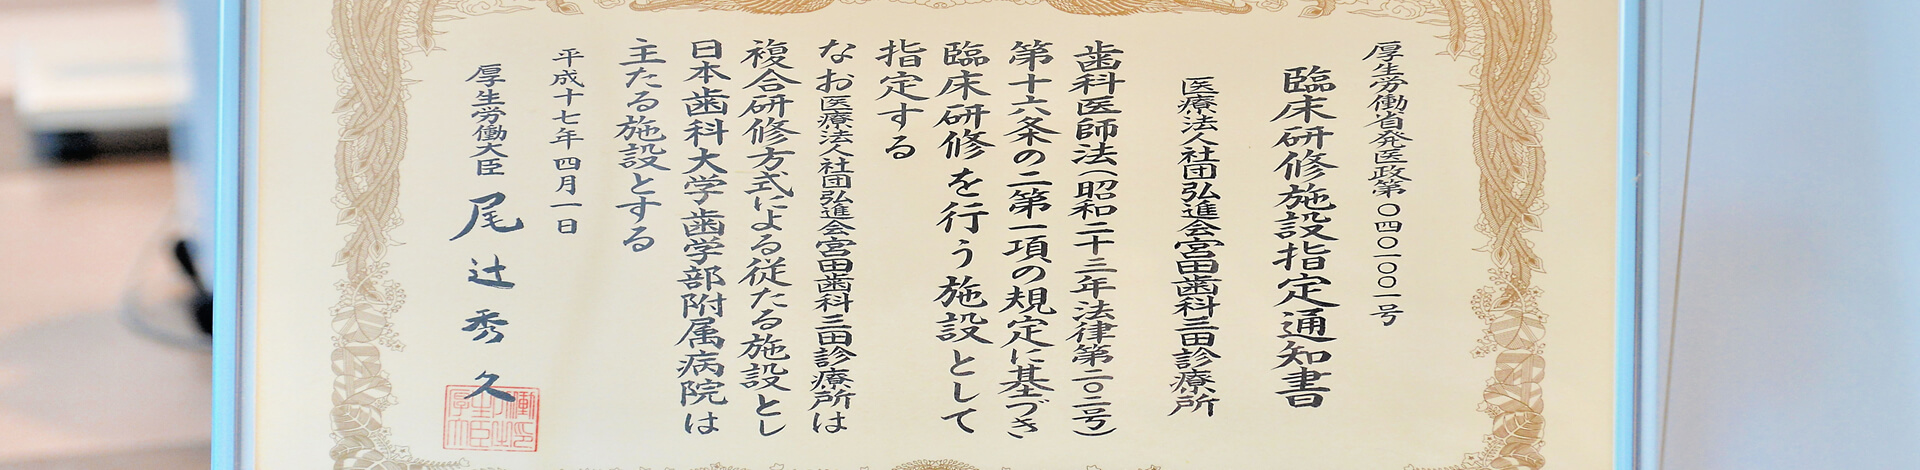 厚生労働省発医政第〇四〇一〇〇一号
臨床研修施設指定通知書
医療法人社団弘進会宮田歯科三田診療所
歯科医師法（昭和二十三年法律第二〇二号）
第十六条の二第一項の規定に基づき
臨床研修を行う施設として
指定する
なお医療法人社団弘進会宮田歯科三田診療所は
複合研修方式による従たる施設とし
日本歯科大学歯学部附属病院は
主たる施設とする
平成十七年四月一日
厚生労働大臣 尾辻秀久